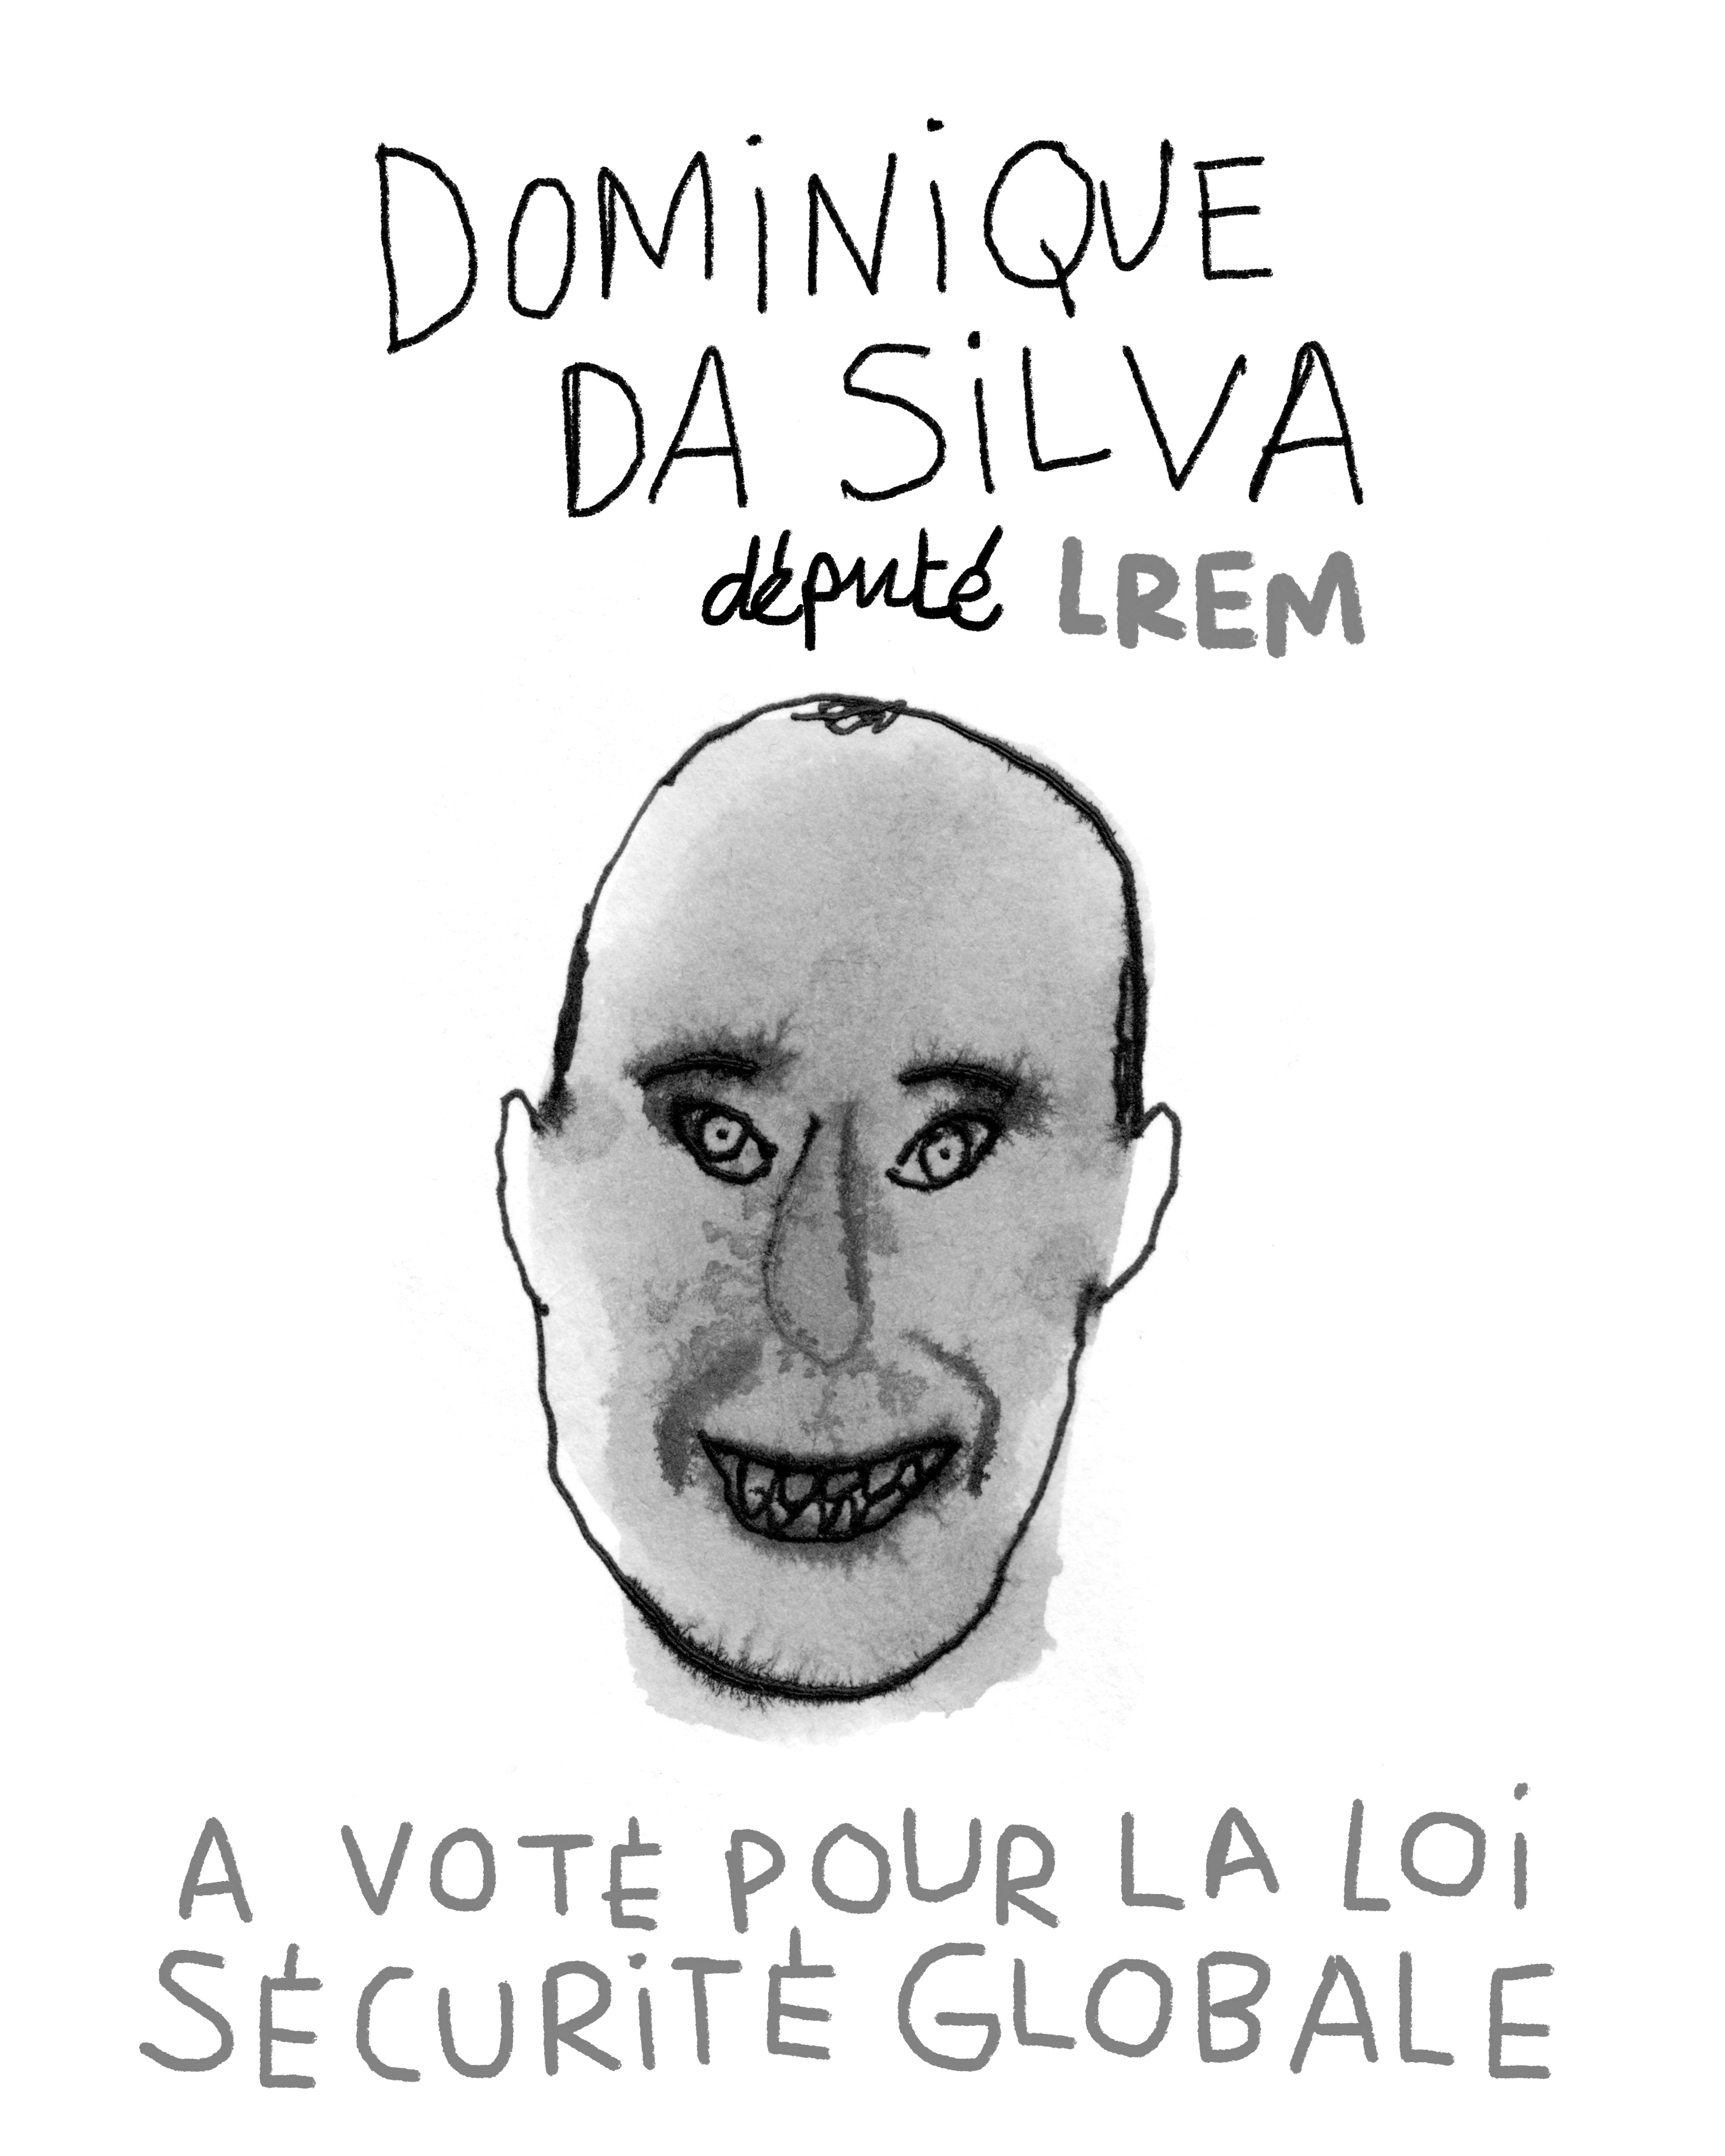 DOMiNiQUE
DA SiLVA
député LREM
A VOTÉ POUR LA LOi
SÉCURiTÉ GLOBALE